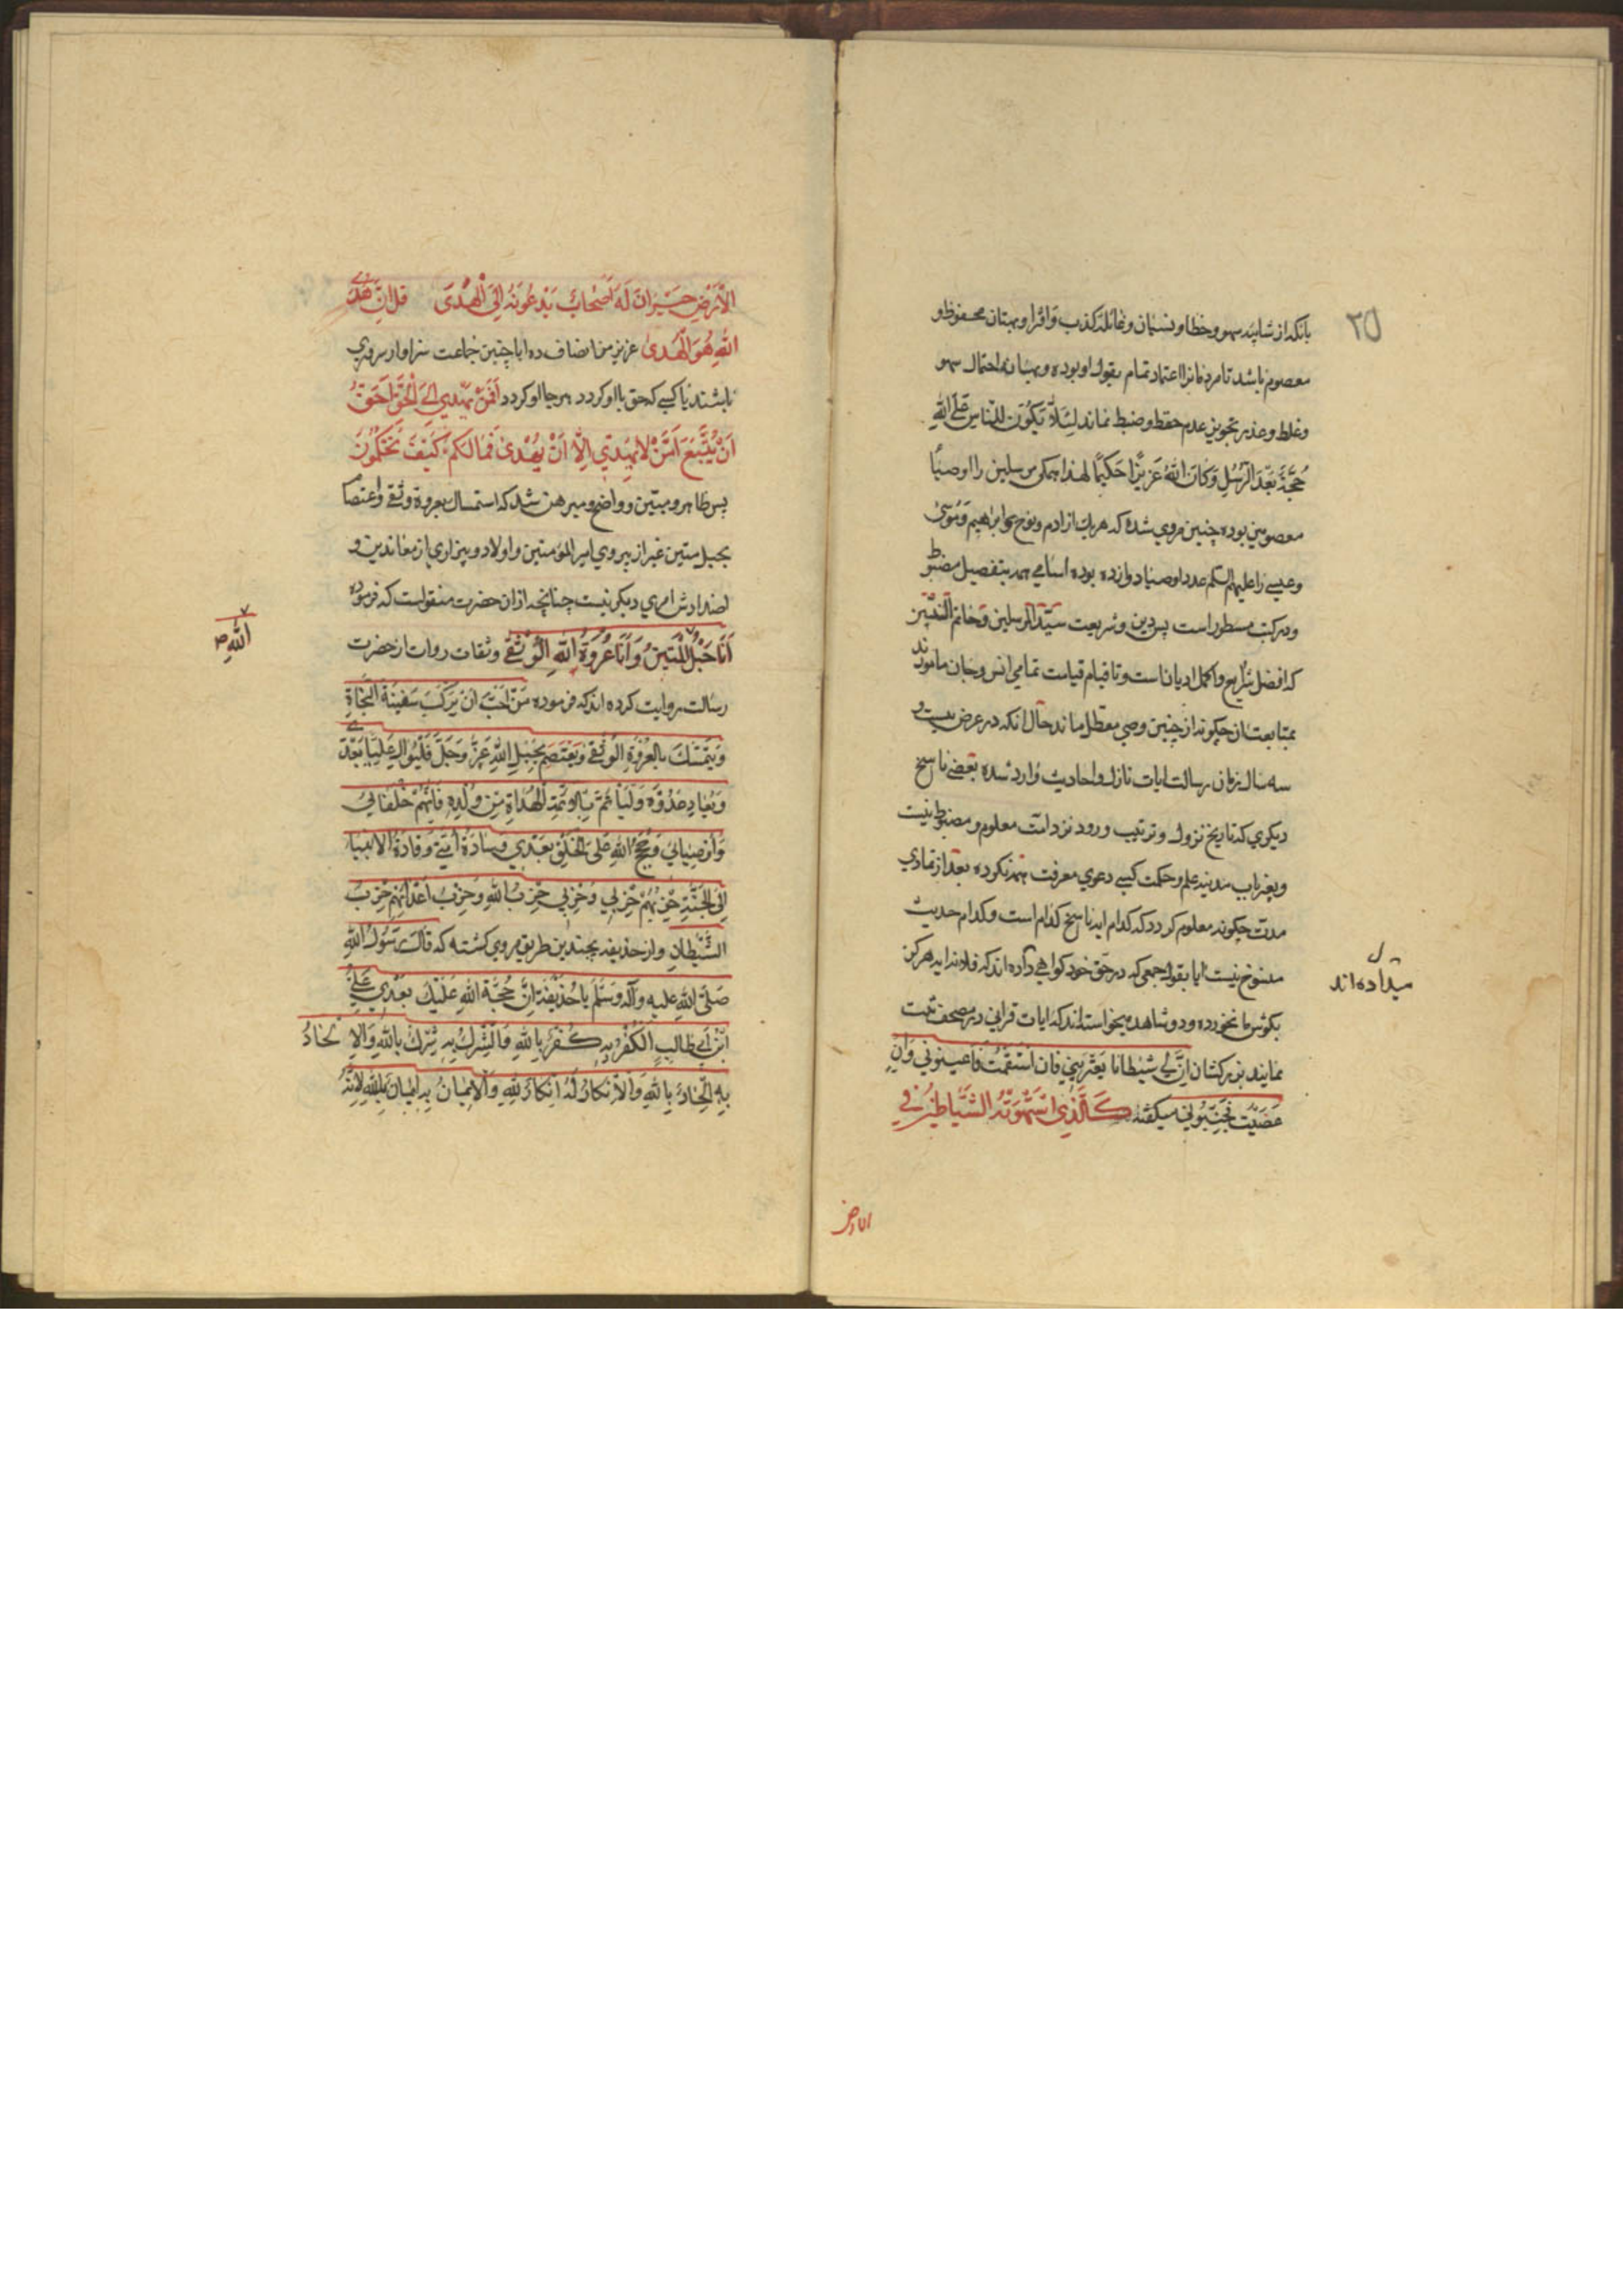 ۲۵
بانکه از شایبه سهو و خطا و نسیان و غائله کذب و افترا و بهتان محفوظ و
معصوم باشد تا مردمانرا اعتماد تمام بقول او بوده و بهانه احتمال سهو
و غلط و عذر تجویز عدم حفظ و ضبط نماند لِئَلَّا یَکُونَ لِلنّاسِ عَلَی اللهِ
حُجَّةٌ بَعْدَ الرُّسُلِ وَکَانَ اللهُ عَزِیزًا حَکِیمًا لهذا همکی مرسلین را اوصیا
معصومین بوده چنین مروی شده که هر یک از ادم و نوح و ابراهیم و موسی
و عیسی را علیهم السلم عدد اوصیا دوازده بوده اسامی همه بتفصیل مضبو
و در کتب مسطور است پس دین و شریعت سیّد المرسلین و خاتم النبیّین
که افضل شرایع و اکمل ادیان است و تا قیام قیامت تمامی انس و جان مامورند
بمتابعت ان چکونه از چنین وصی معطل ماند حال انکه در عرض بیست و
سه سال زمان رسالت ایات نازل و احادیث وارد شده بعضی ناسخ
دیکری که تاریخ نزول و ترتیب ورود نزد امت معلوم و مضبوط نیست
و بغیر باب مدینه علم و حکمت کسی دعوی معرفت همه نکرده بعد از تمادی
مدت چکونه معلوم کردد که کدام ایه ناسخ کدام است و کدام حدیث
منسوخ نیست ایا بقول جمعی که در حق خود کواهی داده اند که فلان ایه هرکز
میداده اند
بکوش ما نخورده و دو شاهد میخواسته اند که ایات قرانی در مصحف ثبت
نمایند بزرکشان اِنَّ لِی شیطانا یَعْتَرینی فان استقمتُ فاعینونی وَاِنْ
عَصَیْت فجَنِّبُونی میکفته کَالَّذِی اسْتَهْوَتْهُ الشَّیَاطِینُ فِی
الارض
الْاَرْضِ حَیْرَانَ لَهُ اَصْحَابٌ یَدْعُونَهُ اِلَی الْهُدَی قل اِنَّ هُدَی
اللهِ هُوَ الْهُدَی عزیز من انصاف ده ایا چنین جماعت سزاوار سروری
باشند یا کسی که حق با او کردد هر جا او کردد اَفَمَنْ یَهْدِی اِلَی الْحَقِّ اَحَقُّ
اَنْ یُتَّبَعَ اَمَّنْ لَا یَهِدِّی اِلَّا اَنْ یُهْدَی فَمَا لَکُمْ کَیْفَ تَحْکُمُونَ
پس ظاهر و مبین و واضح و مبرهن شد که استمساک بعروة وثقی و اعتصا
بحبل متین غیر از پیروی امیر المؤمنین و اولاد و بیزاری از معاندین و
اضدادش امری دیکر نیست چنانچه از ان حضرت منقولست که فرموده
اَنَا حَبْلُ الْمَتِینُ وَ اَنَا عُرْوَةُ اللهِ الْوُثْقَی و ثقات روات از حضرت
اللهِ ص
رسالت روایت کرده اند که فرموده مَنْ اَحَبَّ اَنْ یَرْکَبَ سَفِینَةَ النَّجَاةِ
وَیَتَمَسَّكَ بِالْعُرْوَةِ الْوُثْقَی وَیَعْتَصِمَ بِحَبْلِ اللهِ عَزَّ وَجَلَّ فَلْیُوَالِ عَلِیًّا بَعْدِی
وَیُعَادِ عَدُوَّهُ وَلْیَأْتَمَّ بِالْاَئِمَّةِ الْهُدَاةِ مِنْ وُلْدِهِ فَاِنَّهُمْ خُلَفَائِی
وَاَوْصِیَائِی وَحُجَجُ اللهِ عَلَی الْخَلْقِ بَعْدِی وَسَادَةُ اُمَّتِی وَقَادَةُ الْاَنْبِیَا
اِلَی الْجَنَّةِ حِزْبُهُمْ حِزْبِی وَحِزْبِی حِزْبُ اللهِ وَحِزْبُ اَعْدَائِهِمْ حِزْبُ
الشَّیْطَانِ و از حذیفه بچندین طریق مروی کشته که قالَ رَسُولُ اللهِ
صَلَّی اللهُ عَلَیهِ وَآلِه وَسَلَّمَ یَا حُذَیْفَةُ اِنَّ حُجَّةَ اللهِ عَلَیْكَ بَعْدِی عَلِیُّ
ابْنُ اَبِی طَالِبٍ اَلْکُفْرُ بِهِ کُفْرٌ بِاللهِ وَالشِّرْكُ بِهِ شِرْكٌ بِاللهِ وَالاِلْحَادُ
بِهِ اِلْحَادٌ بِاللهِ وَالْاِنْکَارُ لَهُ اِنْکَارٌ لِلّهِ وَالْاِیمَانُ بِهِ اِیمَانٌ بِاللهِ لِاَنَّهُ